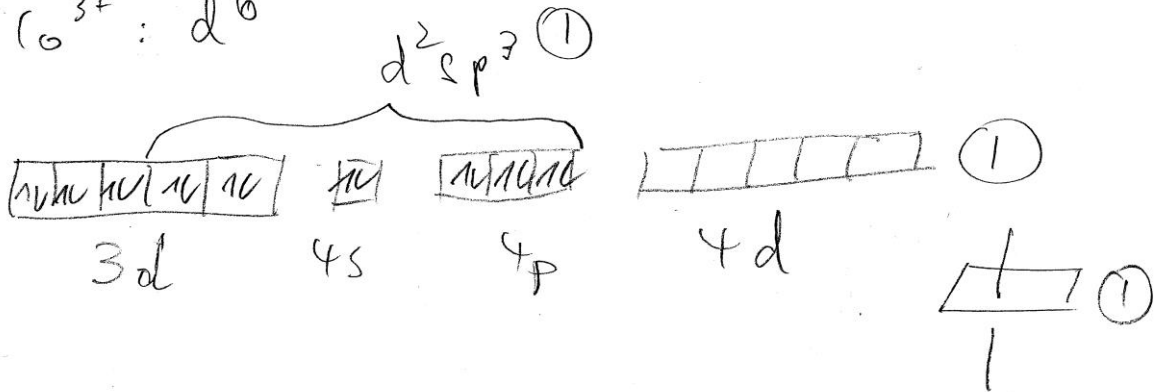 Co³⁺ : d⁶
d²sp³ ①
↑↓ ↑↓ ↑↓ ↑↓ ↑↓ ↑↓ ↑↓ ↑↓ ↑↓ ①
3d 4s 4p 4d
①